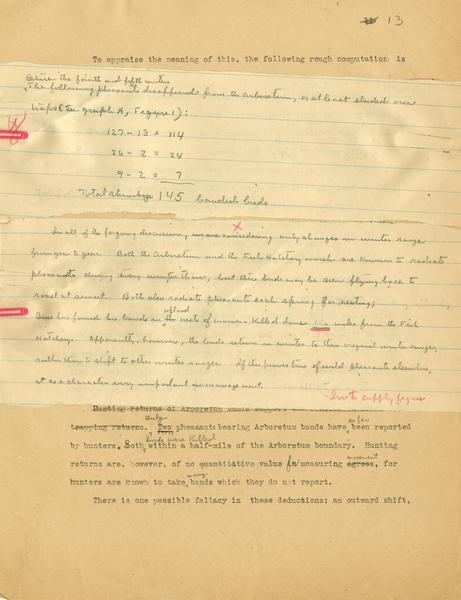 13
To appraise the meaning of this, the following rough computation is
Between the fourth and fifth winters
The following pheasants disappeared from the Arboretum, or at least eluded our
traps (See graph A, Figure 1):
127 - 13 = 114
26 - 2 = 24
9 - 2 = 7
Total shrinkage 145 banded birds
x
In all of the forgoing discussion, we are considering only changes in winter range
from year to year. Both the Arboretum and the Fish Hatchery marsh are known to radiate
pheasants during every winter thaw, but these birds may be seen flying back to
roost at sunset. Both also radiate pheasants each spring for nesting;
Buss has found his bands in the nests of mower-killed hens miles from the Fish
upland
Hatchery. Apparently, however, the birds return in winter to their original winter ranges,
rather than to shift to other winter ranges. If this proves true of wild pheasants elsewhere,
it is a character very important in management.
Irv to supply figure
Hunting returns of Arboretum bands support
only so far
trapping returns. Two pheasants bearing Arboretum bands have been reported
birds were killed
by hunters. Both within a half-mile of the Arboretum boundary. Hunting
movement
returns are, however, of no quantitative value for measuring egress, for
many
hunters are known to take bands which they do not report.
There is one possible fallacy in these deductions: an outward shift,